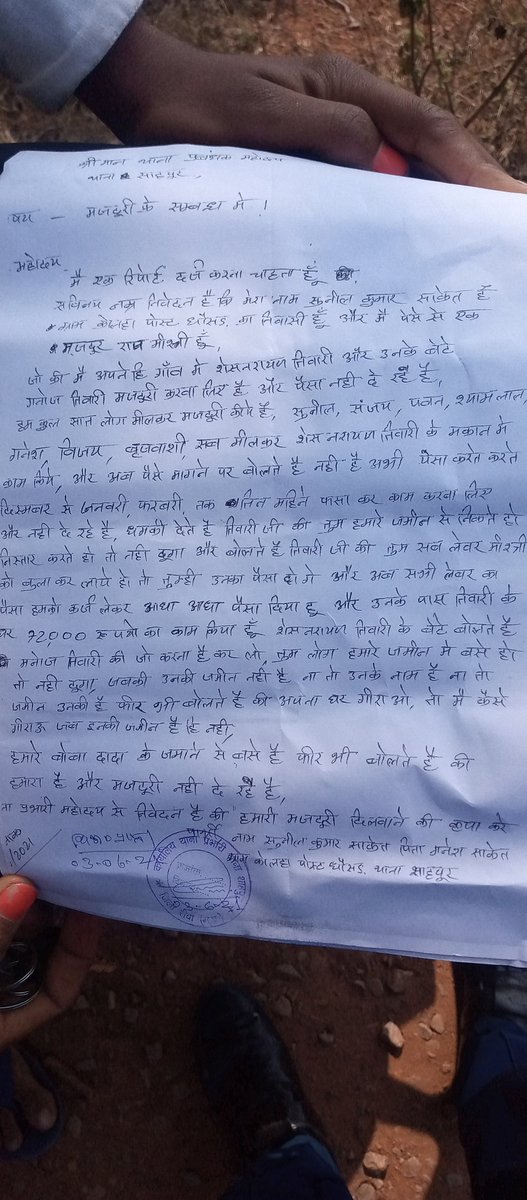 श्रीमान थाना प्रबंधक महोदय
थाना साहपुर,
षय - मजदूरी के सम्बन्ध मे !
महोदय
मै एक रिपोर्ट दर्ज करना चाहता हूँ की,
सविनय नम्र निवेदन है कि मेरा नाम सुनील कुमार साकेत हैं
ग्राम कोलहा पोस्ट धौसड का निवासी हूँ और मै पेसे से एक
मजदुर राज मीस्त्री हूँ,
जो की मै अपने हि गाँव मे शेसनरायण तिवारी और उनके बेटे
मनोज तिवारी मजदुरी करवा लिए है और पैसा नही दे रहे है,
हम कुल सात लोग मीलकर मजदुरी कीये है, सुनील, संजय, पवन, श्यामलाल,
गनेश, विजय, वृजवाशी, सब मीलकर शेसनरायण तिवारी के मकान मे
काम किये, और अब पैसे मागने पर बोलते है नही है अभी पैसा करते करते
दिसम्बर से जनवरी, फरबरी, तक तिन महिने फासा कर काम करवा लिए
और नही दे रहे है, धमकी देते है तिवारी जी की तुम हमारे जमीन से निकते हो
निस्तार करते हो तो नही दूगा और बोलते है तिवारी जी की तुम सब लेवर मीस्त्री
को बुला कर लाये हो तो तुम्ही उनका पैसा दो गे और अब सभी लेवर का
पैसा हमको कर्ज लेकर आधा आधा पैसा दिया हू और उनके पास तिवारी के
घर 22,000 रूपयो का काम किया हूँ शेसनरायण तिवारी के बेटे बोलते है
मनोज तिवारी की जो करना है कर लो, तुम लोग हमारे जमीन मे बसे हो
तो नही दूगा, जबकी उनकी जमीन नही है ना तो उनके नाम है ना तो
जमीन उनकी है फीर भी बोलते है की अपना घर गीराओ, तो मै कैसे
गीराऊ जब इनकी जमीन है हि नही,
हमारे बोबा दादा के जमाने से बसे है फीर भी बोलते है की
हमारा है और मजदूरी नही दे रहे है,
ना प्रभारी महोदय से निवेदन है की हमारी मजदूरी दिलवाने की कृपा करे
प्रार्थी नाम सुनील कुमार साकेत पिता गनेश साकेत
ग्राम कोलहा पोस्ट धौसड थाना साहपुर
/2021
03-06-2